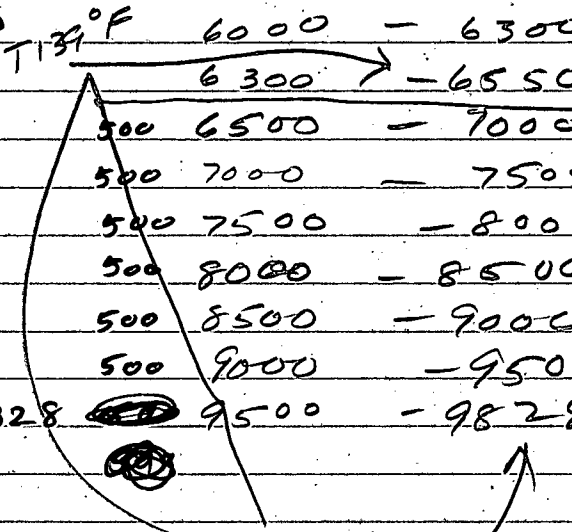 T139°F 6000 - 6300
6300 - 6550
500 6500 - 7000
500 7000 - 750
500 7500 - 800
500 8000 - 8500
500 8500 - 9000
500 9000 - 950
328 9500 - 9828